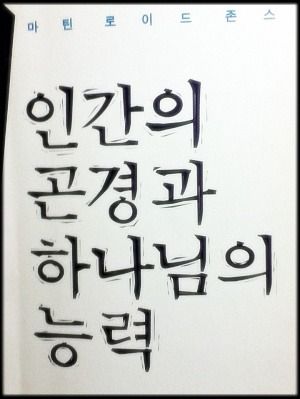 마틴 로이드 존스
인간의
곤경과
하나님의
능력